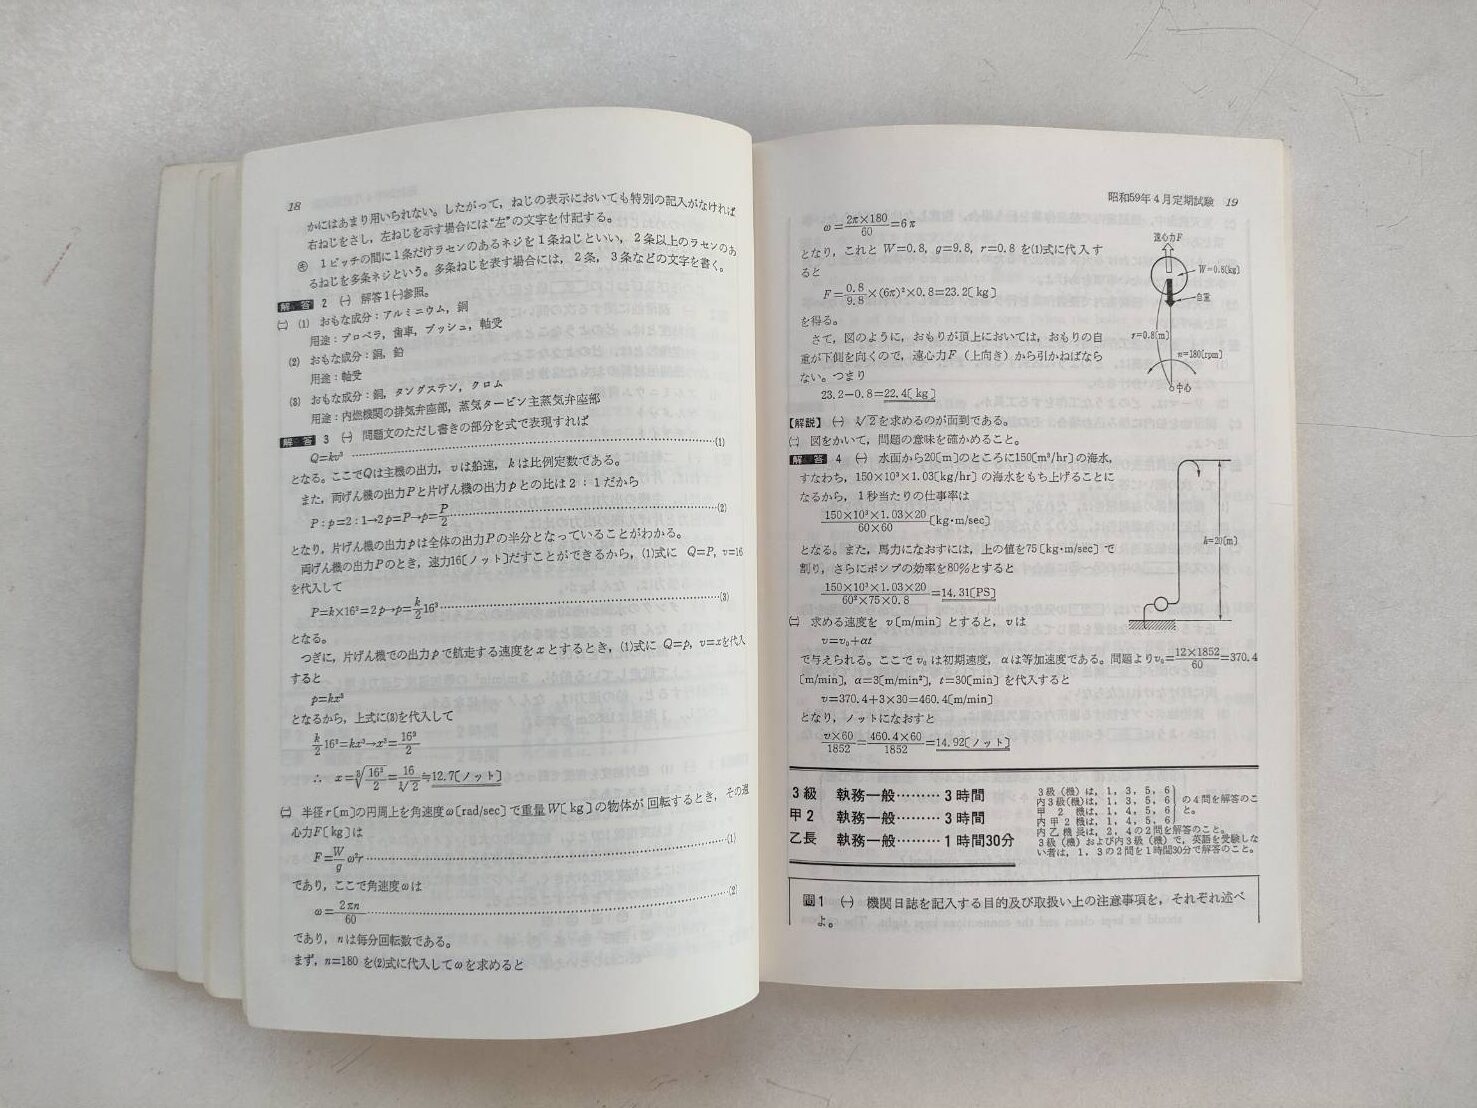 18
かにはあまり用いられない。したがって，ねじの表示においても特別の記入がなければ
右ねじをさし，左ねじを示す場合には“左”の文字を付記する。
㊟ 1ピッチの間に1条だけラセンのあるネジを1条ねじといい，2条以上のラセンのあ
るねじを多条ネジという。多条ねじを表す場合には，2条，3条などの文字を書く。
解答 2 ㈠ 解答1㈠参照。
㈡ (1) おもな成分：アルミニウム，銅
用途：プロペラ，歯車，ブッシュ，軸受
(2) おもな成分：銅，鉛
用途：軸受
(3) おもな成分：銅，タングステン，クロム
用途：内燃機関の排気弁座部，蒸気タービン主蒸気弁座部
解答 3 ㈠ 問題文のただし書きの部分を式で表現すれば
Q=kv³ ……(1)
となる。ここでQは主機の出力，vは船速，kは比例定数である。
また，両げん機の出力Pと片げん機の出力pとの比は2：1だから
P:p=2:1→2p=P→p=P/2 ……(2)
となり，片げん機の出力pは全体の出力Pの半分となっていることがわかる。
両げん機の出力Pのとき，速力16[ノット]だすことができるから，(1)式に Q=P, v=16
を代入して
P=k×16³=2p→p=k/2 16³ ……(3)
となる。
つぎに，片げん機での出力pで航走する速度をxとするとき，(1)式に Q=p, v=xを代入
すると
p=kx³
となるから，上式に(3)を代入して
k/2 16³=kx³→x³=16³/2
∴ x=∛(16³/2)=16/∛2≒12.7[ノット]
㈡ 半径r[m]の円周上を角速度ω[rad/sec]で重量W[kg]の物体が回転するとき，その遠
心力F[kg]は
F=W/g ω²r ……(1)
であり，ここで角速度ωは
ω=2πn/60 ……(2)
であり，nは毎分回転数である。
まず，n=180 を(2)式に代入してωを求めると
昭和59年4月定期試験 19
ω=2π×180/60=6π
となり，これと W=0.8, g=9.8, r=0.8 を(1)式に代入す
ると
F=0.8/9.8×(6π)²×0.8=23.2[kg]
を得る。
さて，図のように，おもりが頂上においては，おもりの自
重が下側を向くので，遠心力F（上向き）から引かねばなら
ない。つまり
23.2−0.8=22.4[kg]
遠心力F
W=0.8[kg]
自重
r=0.8[m]
n=180[rpm]
中心
【解説】 ㈠ ∛2を求めるのが面到である。
㈡ 図をかいて，問題の意味を確かめること。
解答 4 ㈠ 水面から20[m]のところに150[m³/hr]の海水，
すなわち，150×10³×1.03[kg/hr]の海水をもち上げることに
なるから，1秒当たりの仕事率は
150×10³×1.03×20/60×60 [kg·m/sec]
となる。また，馬力になおすには，上の値を75[kg·m/sec]で
割り，さらにポンプの効率を80%とすると
150×10³×1.03×20/60²×75×0.8=14.31[PS]
h=20[m]
㈡ 求める速度を v[m/min]とすると，vは
v=v₀+αt
で与えられる。ここでv₀は初期速度，αは等加速度である。問題よりv₀=12×1852/60=370.4
[m/min]，α=3[m/min²]，t=30[min]を代入すると
v=370.4+3×30=460.4[m/min]
となり，ノットになおすと
v×60/1852=460.4×60/1852=14.92[ノット]
3級 執務一般………3時間
甲2 執務一般………3時間
乙長 執務一般………1時間30分
3級（機）は，1，3，5，6
内3級（機）は，1，3，5，6
甲2機は，1，4，5，6
内甲2機は，1，4，5，6
の4問を解答のこと。
内乙機長は，2，4の2問を解答のこと。
3級（機）および内3級（機）で，英語を受験しな
い者は，1，3の2問を1時間30分で解答のこと。
問1 ㈠ 機関日誌を記入する目的及び取扱い上の注意事項を，それぞれ述べ
よ。